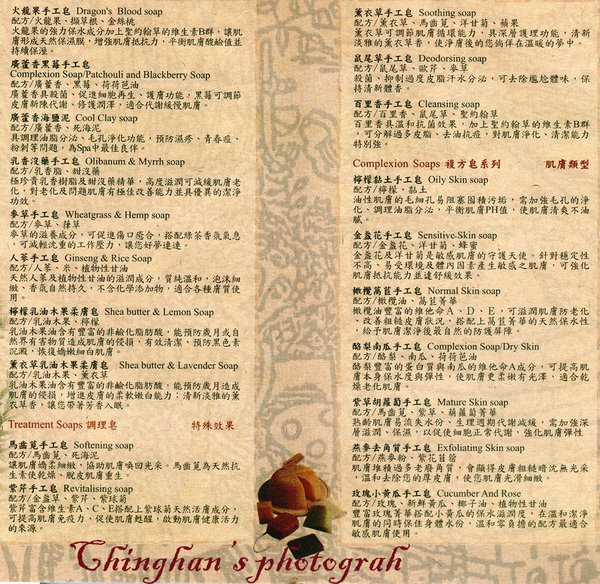 火龍果手工皂 Dragon's Blood soap
配方/火龍果、擷草根、金絲桃
火龍果的強力保水成分加上聖約翰草的維生素B群,讓肌
膚形成天然保濕膜,增強肌膚抵抗力,平衡肌膚酸鹼值並
持續保溼。
廣藿香黑莓手工皂
Complexion Soap/Patchouli and Blackberry Soap
配方/廣藿香、黑莓、荷荷芭油
廣藿香具殺菌、促進細胞再生、護膚功能,黑莓可調節
皮膚新陳代謝、修護潤澤,適合代謝緩慢肌膚。
廣藿香海鹽泥 Cool Clay soap
配方/廣藿香、死海泥
具調理油脂分泌、毛孔淨化功能,預防濕疹、青春痘、
粉刺等問題,為Spa中最佳良伴。
乳香沒藥手工皂 Olibanum & Myrrh soap
配方/乳香脂、甜沒藥
極珍貴乳香樹脂及甜沒藥精華,高度滋潤可減緩肌膚老
化,對老化及問題肌膚有極佳改善能力並具優異的潔淨
功效。
麥草手工皂 Wheatgrass & Hemp soap
配方/麥草、捶草
麥草的滋養成分,可促進傷口癒合,搭配綠茶香氛氣息
,可減輕沈重的工作壓力,讓您好夢連連。
人蔘手工皂 Ginseng & Rice Soap
配方/人蔘、米、植物性甘油
天然人蔘及植物性甘油的滋潤成分,質純溫和,泡沫細
緻、香氛自然持久,不含化學添加物,適合各種膚質使
用。
檸檬乳油木果柔膚皂 Shea butter & Lemon Soap
配方/乳油木果、檸檬
乳油木果油含有豐富的非鹼化脂肪酸,能預防歲月或自
然界有害物質造成肌膚的侵損,有效清潔,預防黑色素
沉澱,恢復嬌嫩細白肌膚。
薰衣草乳油木果柔膚皂 Shea butter & Lavender Soap
配方/乳油木果、薰衣草
乳油木果油含有豐富的非鹼化脂肪酸,能預防歲月造成
肌膚的侵損,增進皮膚的柔軟嫩白能力;清新淡雅的薰
衣草香,讓您帶著芳香入眠。
Treatment Soaps 調理皂 特殊效果
馬齒莧手工皂 Softening soap
配方/馬齒莧、死海泥
讓肌膚嬌柔細緻,協助肌膚喚回光采。馬齒莧為天然抗
生素使乾燥、脫皮肌膚重生。
紫芹手工皂 Revitalising soap
配方/金盞草、紫芹、紫球菊
紫芹富含維生素A、C、E搭配上紫球菊天然活膚成分,
可提高肌膚免疫力、促使肌膚甦醒,啟動肌膚健康活力
的來源。
薰衣草手工皂 Soothing soap
配方/薰衣草、馬齒莧、洋甘菊、蘋果
薰衣草可調節肌膚循環能力,具深層護理功能,清新
淡雅的薰衣草香,使淨膚後的您倘佯在溫暖的夢中。
鼠尾草手工皂 Deodorsing soap
配方/鼠尾草、歐芹、麥草
殺菌、抑制過度皮脂汗水分泌,可去除尷尬體味,保
持清新體香。
百里香手工皂 Cleansing soap
配方/百里香、鼠尾草、聖約翰草
百里香具溫和抗菌效果,加上聖約翰草的維生素B群
,可分解過多皮脂、去油抗痘,對肌膚淨化、清潔能力
特別強。
Complexion Soaps 複方皂系列 肌膚類型
檸檬黏土手工皂 Oily Skin soap
配方/檸檬、黏土
油性肌膚的毛細孔易阻塞囤積污垢,需加強毛孔的淨
化、調理油脂分泌,平衡肌膚PH值,使肌膚清爽不油
膩。
金盞花手工皂 Sensitive Skin soap
配方/金盞花、洋甘菊、蜂蜜
金盞花及洋甘菊是敏感肌膚的守護天使。針對穩定性
不高、易受環境及體內因素產生敏感之肌膚,可強化
肌膚抵抗能力並達舒緩效果。
橄欖萵苣手工皂 Normal Skin soap
配方/橄欖油、萵苣菁華
橄欖油豐富的維他命A、D、E,可滋潤肌膚防老化
、改善粗糙皮膚狀況,搭配上萵苣菁華的天然保水性
,給予肌膚潔淨後最自然的防護屏障。
酪梨南瓜手工皂 Complexion Soap/Dry Skin
配方/酪梨、南瓜、荷荷芭油
酪梨豐富的蛋白質與南瓜的維他命A成分,可提高肌
膚本身保水度與彈性,使肌膚更柔嫩有光澤,適合乾
燥老化肌膚。
紫草胡蘿蔔手工皂 Mature Skin soap
配方/馬齒莧、紫草、葫蘿蔔菁華
熟齡肌膚易流失水份、生理週期代謝減緩,需加強深
層滋潤、保濕,以促使細胞正常代謝,強化肌膚彈性
燕麥去角質手工皂 Exfoliating Skin soap
配方/燕麥粉、紫花苜蓿
肌膚堆積過多老廢角質,會顯得皮膚粗糙暗沈無光采
,溫和去除您的厚皮膚,使您肌膚光滑細緻
玫瑰小黃瓜手工皂 Cucumber And Rose
配方/玫瑰、新鮮黃瓜、椰子油、植物性甘油
豐富玫瑰菁華搭配小黃瓜的保水滋潤度,在溫和潔淨
肌膚的同時保住身體水份,溫和零負擔的配方最適合
敏感肌膚使用。
Chinghan's photograh